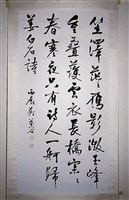 笠澤茫茫雁影微玉峰
重疊護雲衣長橋寂寞
春寒夜只有詩人一舸歸
姜白石詩